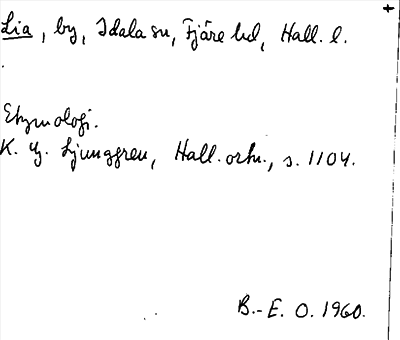 Lia, by, Idala sn, Fjäre hd, Hall. l.
Etymologi.
K. G. Ljunggren, Hall. ortn., s. 1104.
B.-E. O. 1960.